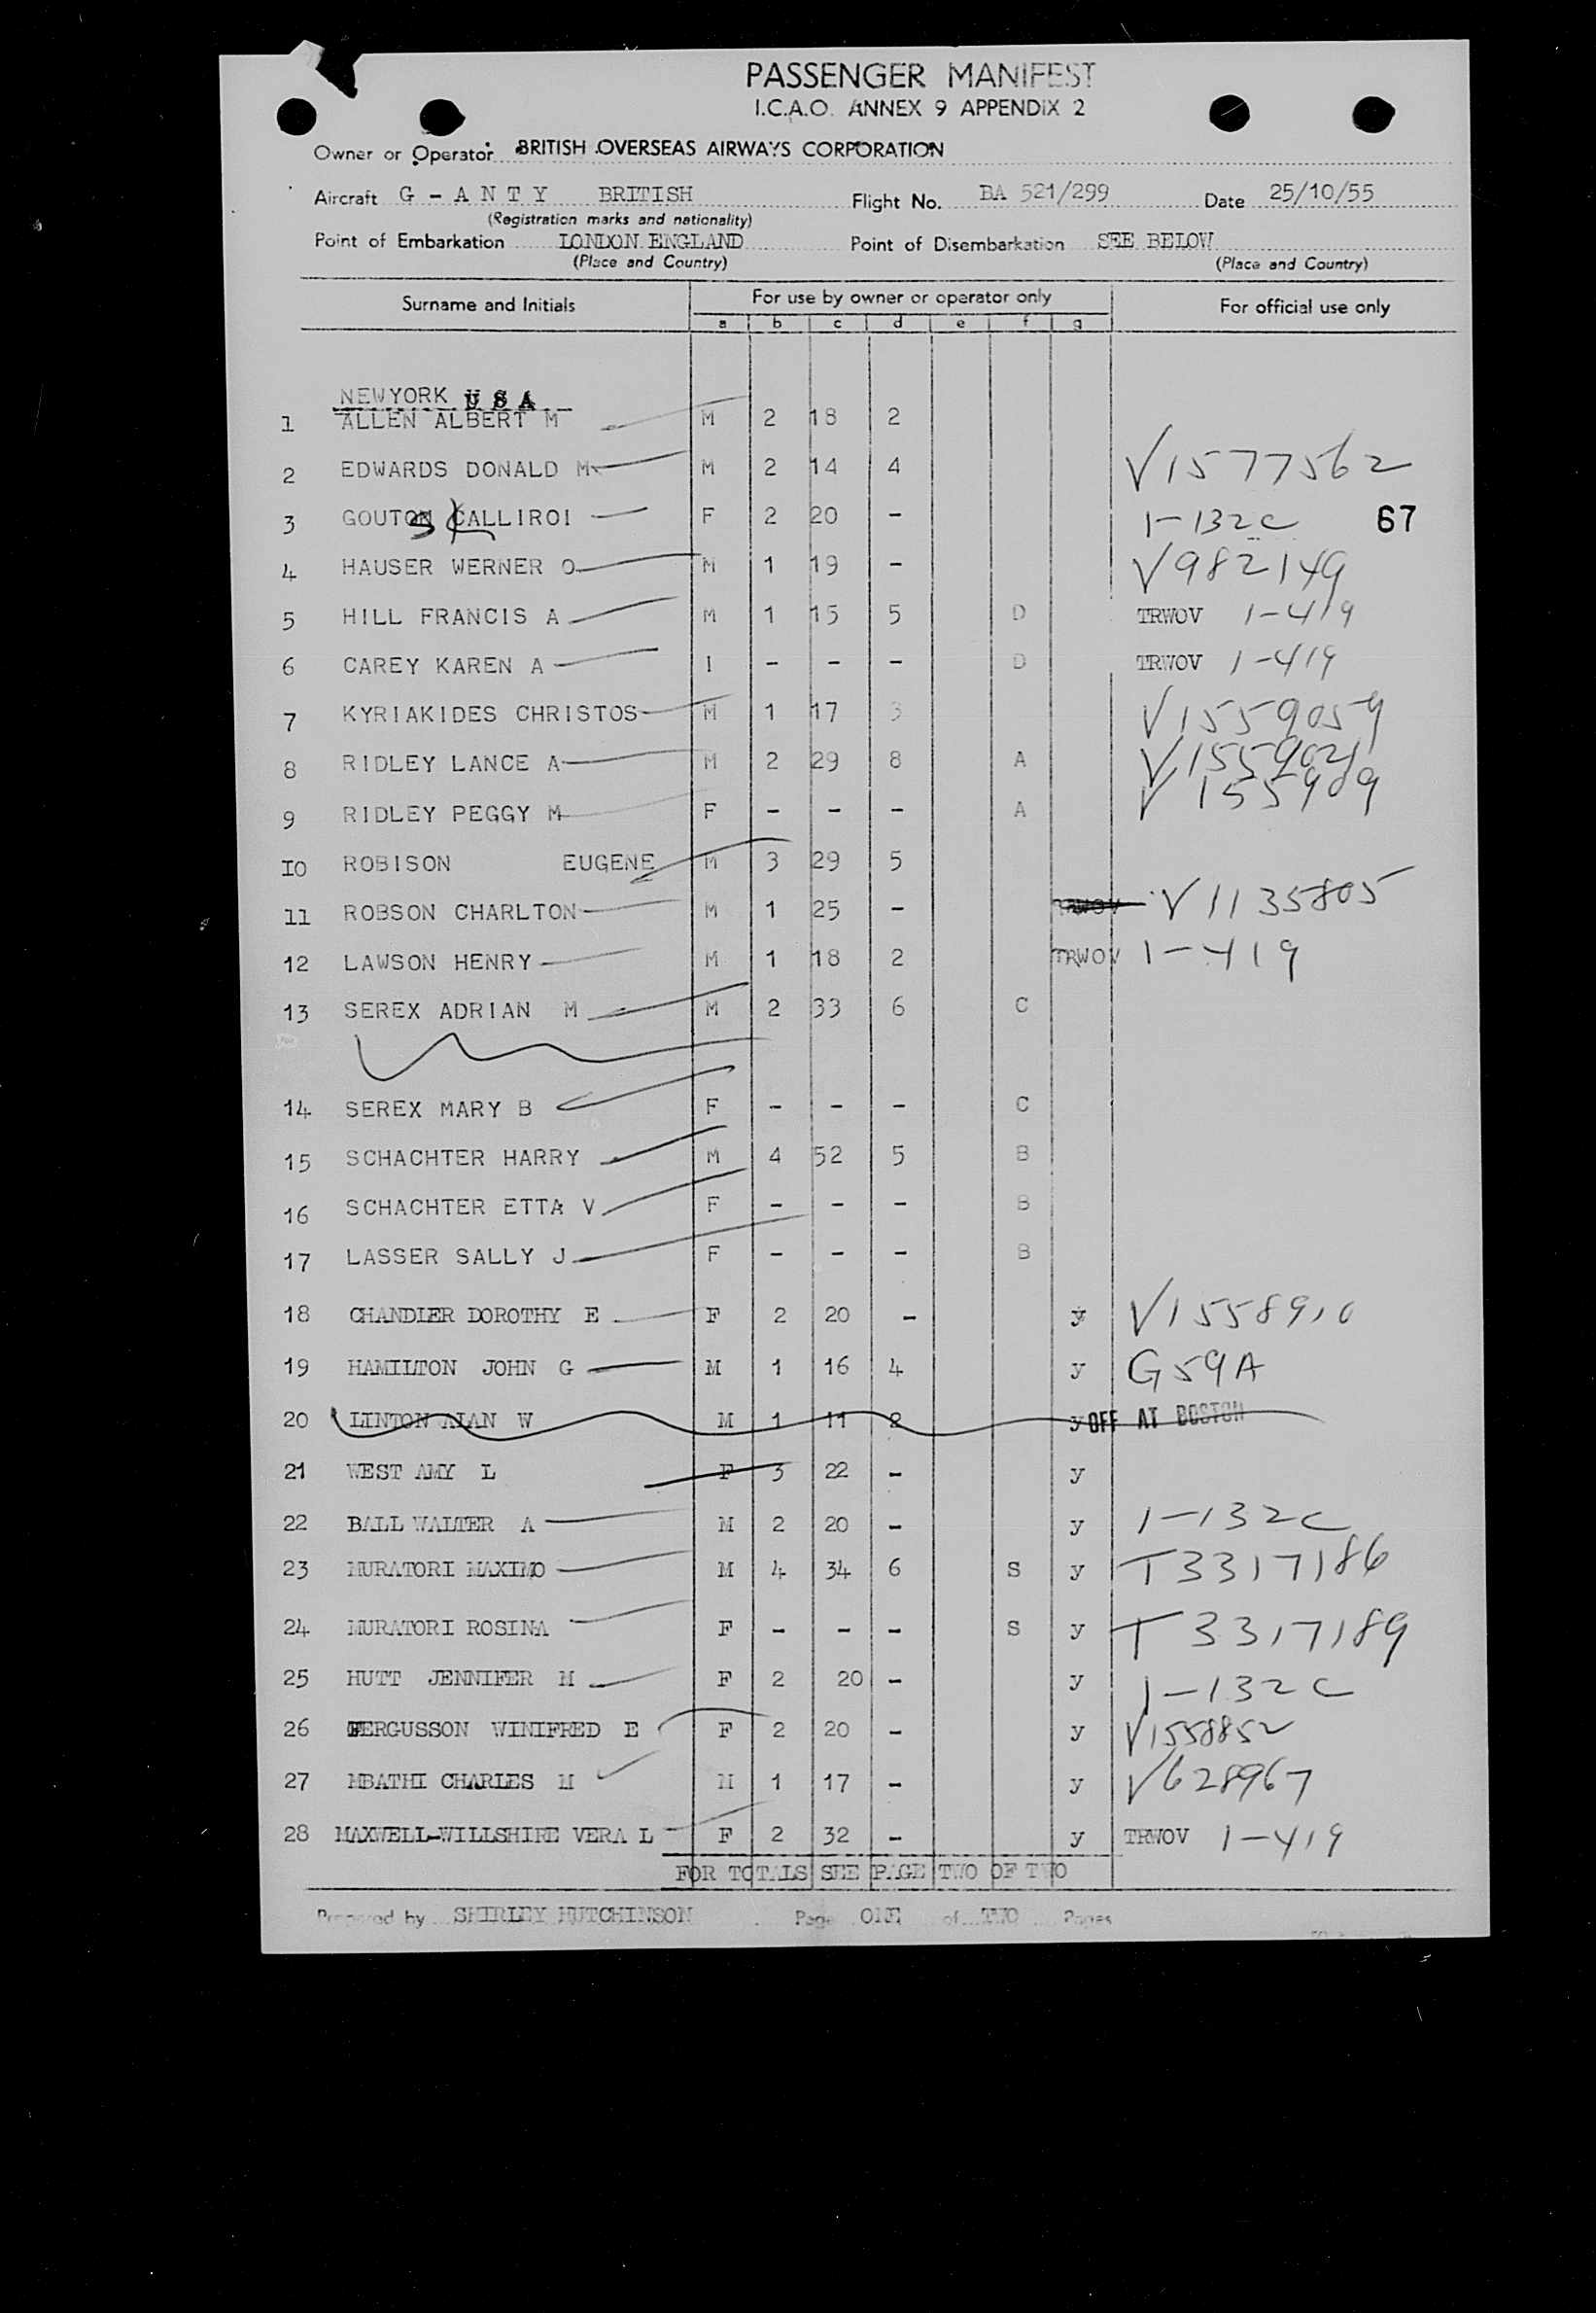 PASSENGER MANIFEST
I.C.A.O. ANNEX 9 APPENDIX 2
Owner or Operator BRITISH OVERSEAS AIRWAYS CORPORATION
Aircraft G - A N T Y BRITISH Flight No. BA 521/299 Date 25/10/55
(Registration marks and nationality)
Point of Embarkation LONDON ENGLAND Point of Disembarkation SEE BELOW
(Place and Country) (Place and Country)
Surname and Initials For use by owner or operator only For official use only
a b c d e f g
NEWYORK U S A
1 ALLEN ALBERT M M 2 18 2
2 EDWARDS DONALD M M 2 14 4 V1577562
3 GOUTOS CALLIROI F 2 20 - 1-132c 67
4 HAUSER WERNER O M 1 19 - V982149
5 HILL FRANCIS A M 1 15 5 D TRWOV 1-419
6 CAREY KAREN A I - - - D TRWOV 1-419
7 KYRIAKIDES CHRISTOS M 1 17 3 V1559059
8 RIDLEY LANCE A M 2 29 8 A
9 RIDLEY PEGGY M F - - - A
10 ROBISON EUGENE M 3 29 5
11 ROBSON CHARLTON M 1 25 - TRWOV V1135805
12 LAWSON HENRY M 1 18 2 TRWOV 1-419
13 SEREX ADRIAN M M 2 33 6 C
14 SEREX MARY B F - - - C
15 SCHACHTER HARRY M 4 52 5 B
16 SCHACHTER ETTA V F - - - B
17 LASSER SALLY J F - - - B
18 CHANDLER DOROTHY E F 2 20 - y V1558910
19 HAMILTON JOHN G M 1 16 4 y G59A
20 LINTON ALAN W M 1 11 2 y OFF AT BOSTON
21 WEST AMY L F 3 22 - y
22 BALL WALTER A M 2 20 - y 1-132c
23 MURATORI MAXIMO M 4 34 6 S y T3317186
24 MURATORI ROSINA F - - - S y T3317189
25 HUTT JENNIFER M F 2 20 - y 1-132c
26 FERGUSSON WINIFRED E F 2 20 - y V1558852
27 MBATHI CHARLES M M 1 17 - y V628967
28 MAXWELL-WILLSHIRE VERA L F 2 32 - y TRWOV 1-419
FOR TOTALS SEE PAGE TWO OF TWO
Prepared by SHIRLEY HUTCHINSON Page ONE of TWO Pages